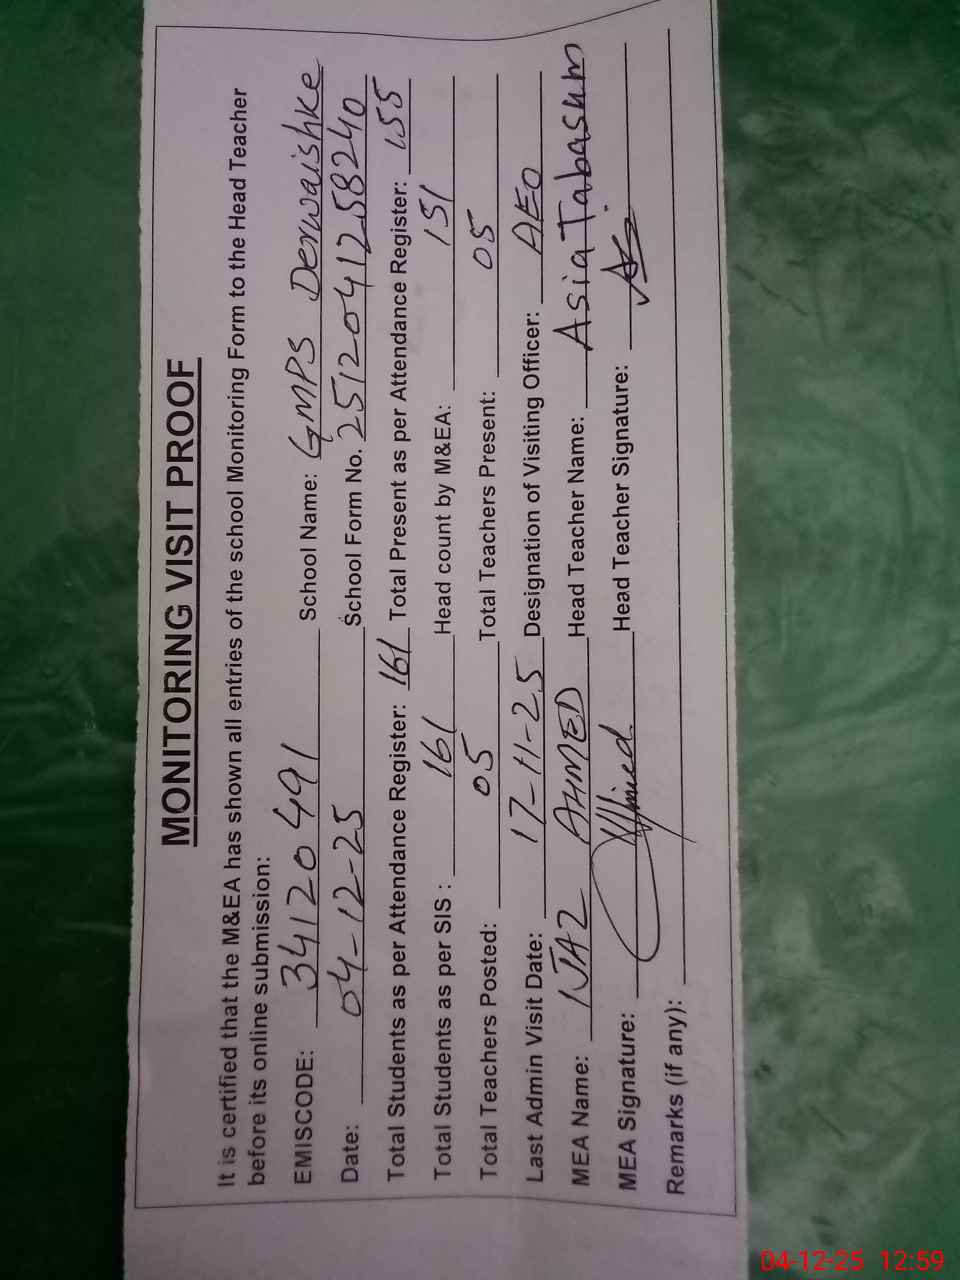 MONITORING VISIT PROOF
It is certified that the M&EA has shown all entries of the school Monitoring Form to the Head Teacher
before its online submission:
EMISCODE: 34120491 School Name: GMPS Derwaishke
Date: 04-12-25 School Form No. 2512041258240
Total Students as per Attendance Register: 161 Total Present as per Attendance Register: 155
Total Students as per SIS: 161 Head count by M&EA: 151
Total Teachers Posted: 05 Total Teachers Present: 05
Last Admin Visit Date: 17-11-25 Designation of Visiting Officer: AEO
MEA Name: IJAZ AHMED Head Teacher Name: Asia Tabasum
MEA Signature: Head Teacher Signature:
Remarks (if any):
04-12-25 12:59